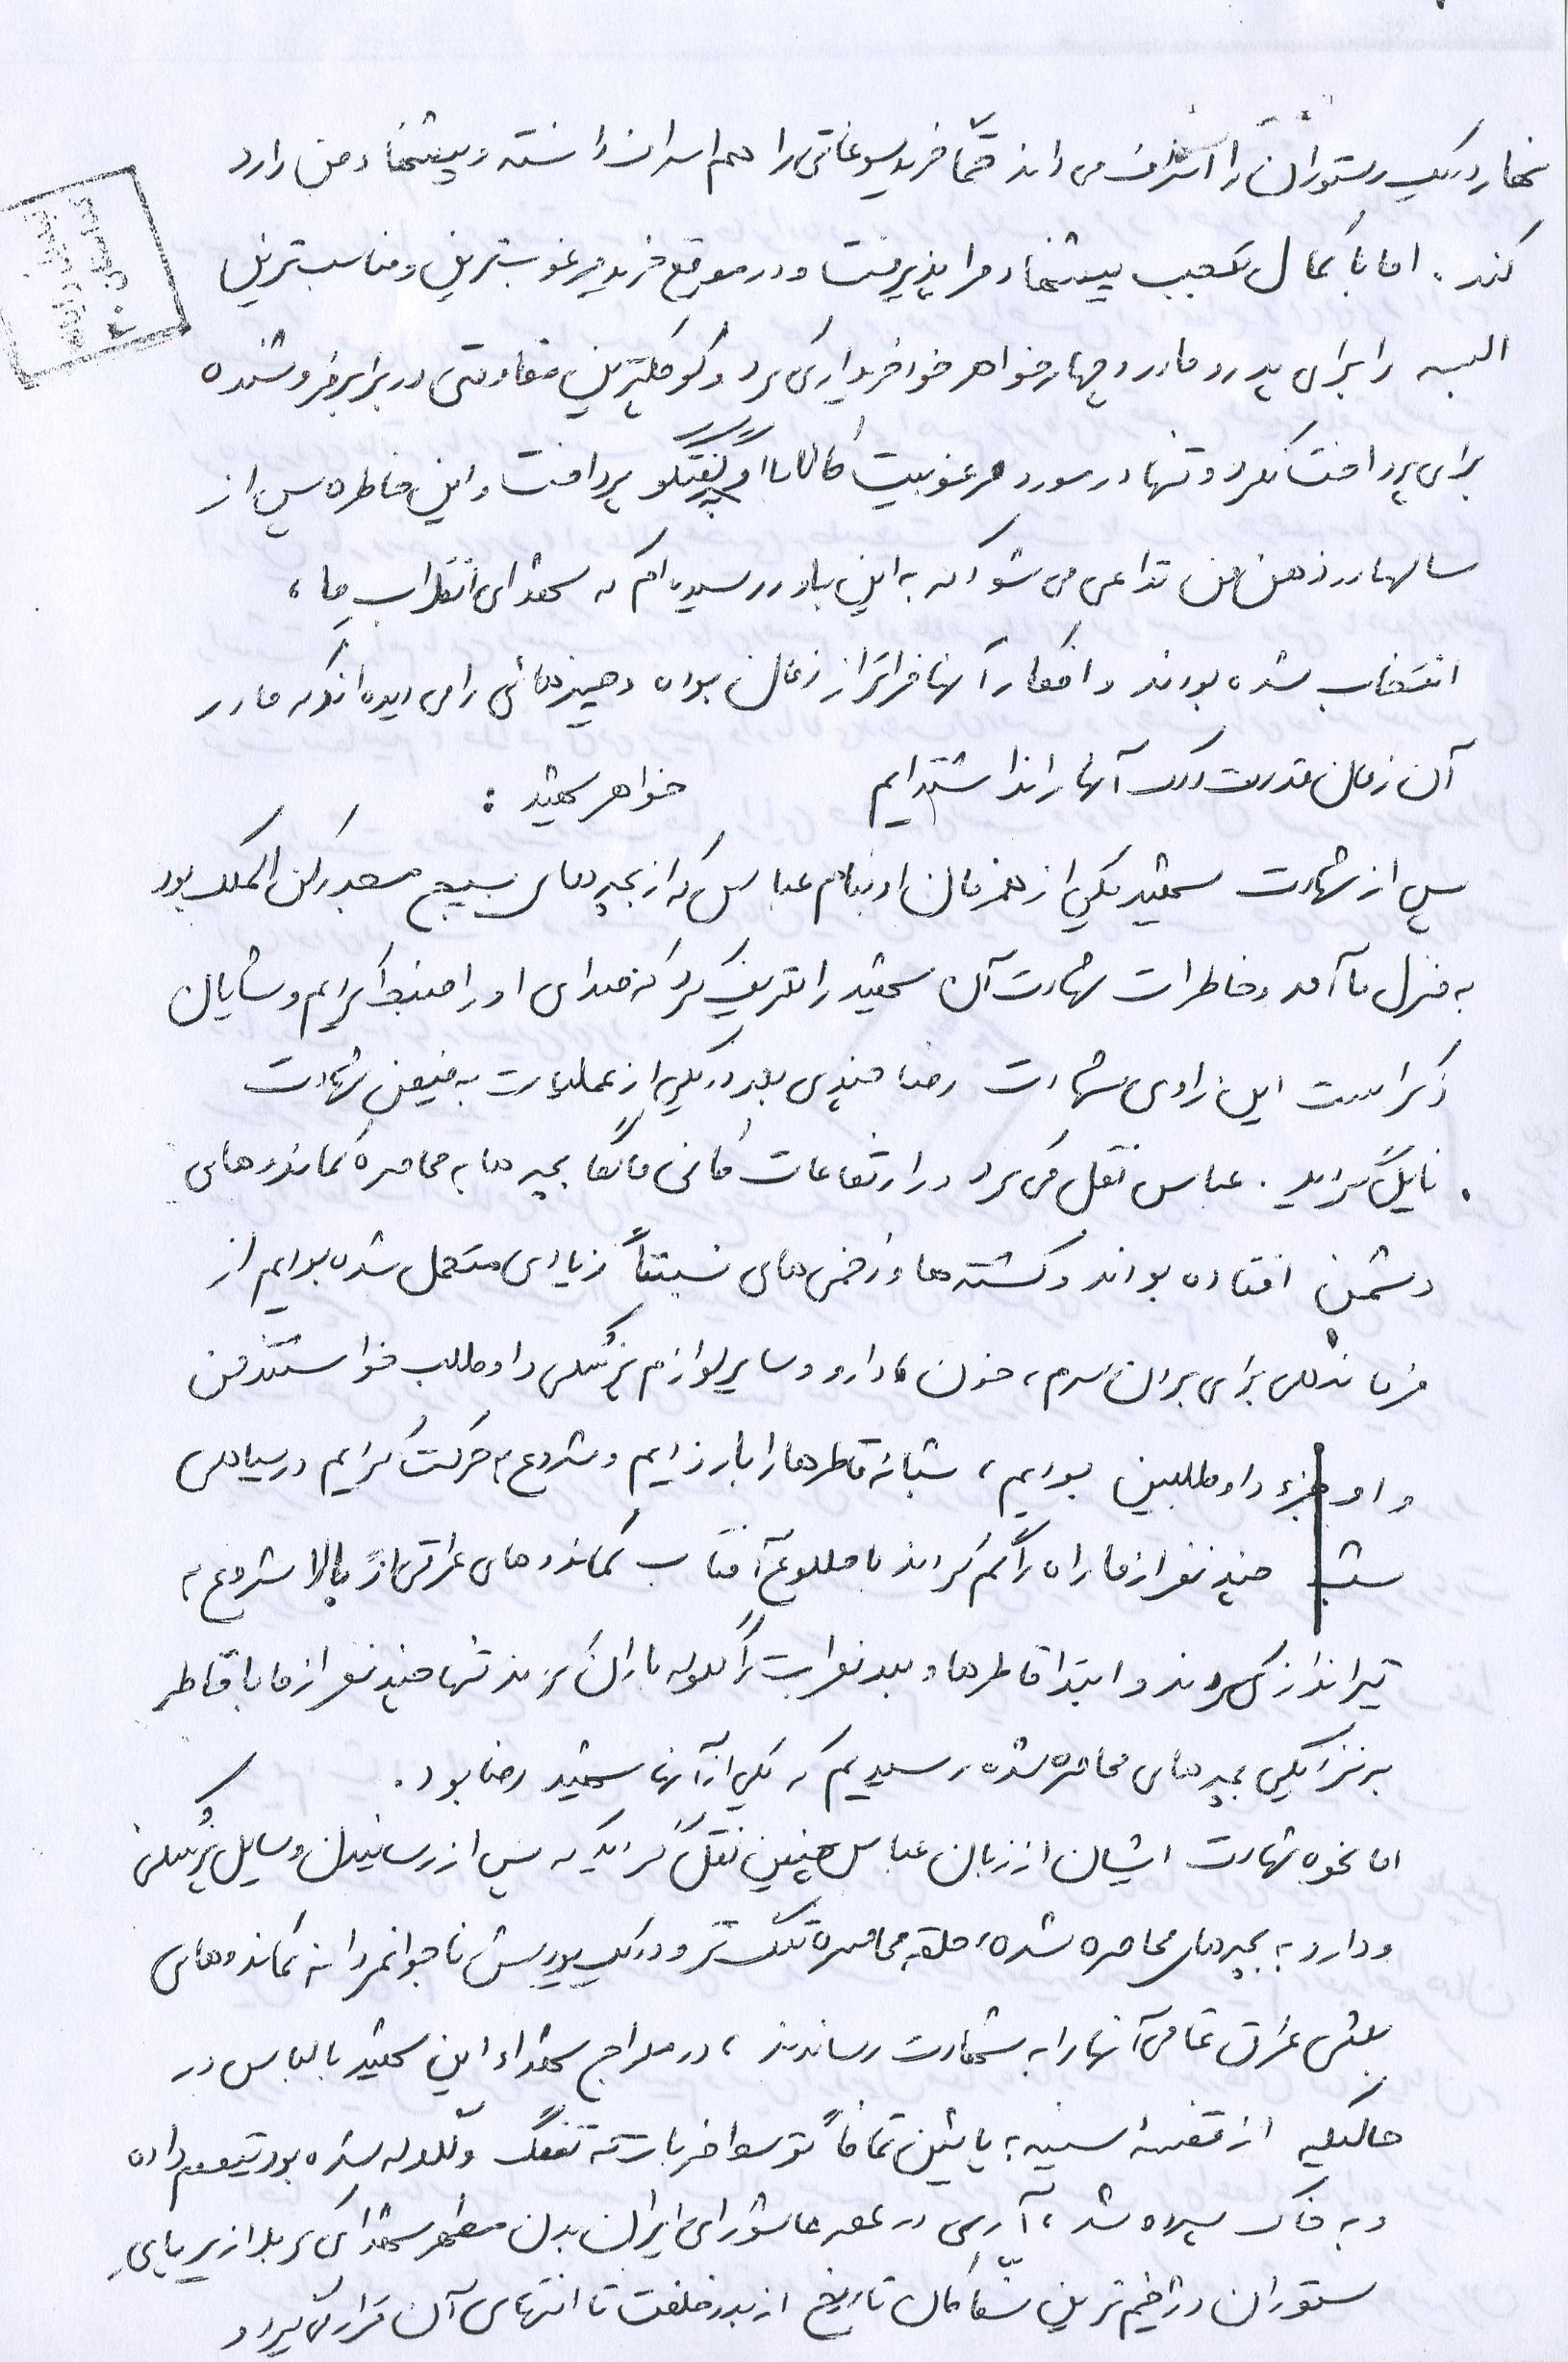 نهار در یک رستوران را اسراف می داند حتماً خرید سوغاتی را هم اسراف دانسته و پیشنهاد من را رد
کند. اما با کمال تعجب پیشنهاد مرا پذیرفت و در موقع خرید مرغوبترین و مناسب ترین
البسه را برای پدر و مادر و چهار خواهر خود خریداری کرد و کوچکترین مقاومتی در برابر فروشنده
برای پرداخت نکرد و تنها در مورد مرغوبیت کالا با او بگفتگو پرداخت و این خاطره پس از
سالها در ذهن من تداعی می شود که به این باور رسیده ام که شهدای انقلاب ما،
انتخاب شده بودند و افکار آنها فراتر از زمان بوده و چیزهائی را می دیده اند که ما در
آن زمان قدرت درک آنها را نداشته ایم خواهر شهید :
پس از شهادت شهید یکی از همرزمان او بنام عباس که از بچه های بسیج مسجد رکن الملک بود
به منزل ما آمد و خاطرات شهادت آن شهید را تعریف کرد که صدای او را ضبط کردیم و شایان
ذکر است این راوی شهادت رضا چندی بعد در یکی از عملیات به فیض شهادت
نایل گردید. عباس نقل می کرد در ارتفاعات کانی مانگا بچه ها به محاصره کماندوهای
دشمن افتاده بودند و کشته ها و زخمی های نسبتاً زیادی متحمل شده بودیم از
فرماندهی برای بردن سرم، خون، دارو و سایر لوازم پزشکی داوطلب خواستند من
و او جزء داوطلبین بودیم، شبانه قاطرها را بار زدیم و شروع به حرکت کردیم در سیاهی
شب چند نفر از ما راه را گم کردند با طلوع آفتاب کماندوهای عراقی از بالا شروع به
تیراندازی کردند و ابتدا قاطرها و بعد نفرات را گلوله باران کردند تنها چند نفر از ما با قاطر
به نزدیکی بچه های محاصره شده رسیدیم که یکی از آنها شهید رضا بود.
اما نحوه شهادت ایشان از زبان عباس چنین نقل گردید که پس از رسانیدن وسایل پزشکی
و دارو به بچه های محاصره شده، حلقه محاصره تنگ تر و در یک یورش ناجوانمردانه کماندوهای
بعثی عراق تمامی آنها را به شهادت رساندند، در معراج شهداء این شهید با لباس در
حالیکه از قفسه سینه به پایین تماماً توسط ضربات ته تفنگ و گلوله شده بود تیمم داده
و به خاک سپرده شد، آری در عصر عاشورای ایران بدن مطهر شهدای کربلا از زیر پای
ستوران دژخیم ترین سفاکان تاریخ از بدو خلقت تا انتهای آن قرار می گیرد و